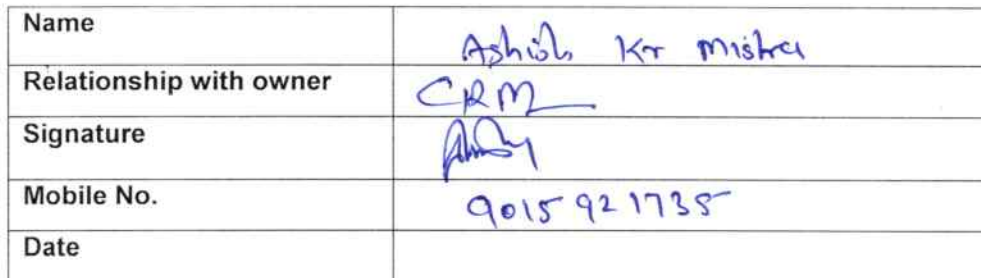 Name Ashish Kr Mishra
Relationship with owner CRM
Signature
Mobile No. 9015921735
Date